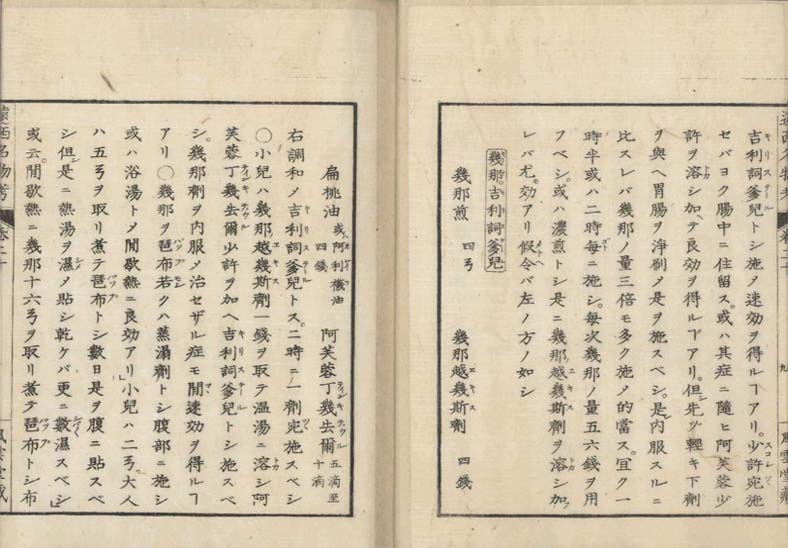 吉利詞爹兒トシ施メ速効ヲ得ルヿアリ。少許宛施
セバヨク腸中ニ住留ス。或ハ其症ニ隨ヒ阿芙蓉少
許ヲ溶シ加ヘテ良効ヲ得ルヿアリ。但先ヅ輕キ下劑
ヲ與ヘ胃腸ヲ淨刷メ是ヲ施スベシ。是レ内服スルニ
比スレバ幾那ノ量三倍モ多ク施メ的當ス。冝ク一
時半或ハ二時每ニ施シ。每次幾那ノ量五六錢ヲ用
フベシ。或ハ濃煎トシ是ニ幾那越幾斯劑ヲ溶シ加フ
レバ尤モ効アリ假令バ左ノ方ノ如シ
幾那吉利詞爹兒
幾那煎 四弓 幾那越幾斯劑 四錢
扁桃油 或阿利襪油 四錢 阿芙蓉丁幾去爾 五滴至十滴
右調和メ吉利詞爹兒トス。二時ニ一劑宛施スベシ
〇小兒ハ幾那越幾斯劑一錢ヲ取テ温湯ニ溶シ阿
芙蓉丁幾去爾少許ヲ加ヘ吉利詞爹兒トシ施スベ
シ。幾那劑ヲ内服メ治セザル症モ間速効ヲ得ルヿ
アリ〇幾那ヲ琶布若クハ蒸溻劑トシ腹部ニ施シ
或ハ浴湯トメ間歇熱ニ良効アリ」小兒ハ二弓。大人
ハ五弓ヲ取リ煮テ琶布トシ數日是ヲ腹ニ貼スベ
シ但シ是ニ熱湯ヲ濕メ貼シ乾ケバ更ニ數濕スベシ」
或云。間歇熱ニ幾那十六弓ヲ取リ煮テ琶布トシ布
遠西名物考 卷二十
風雲堂藏